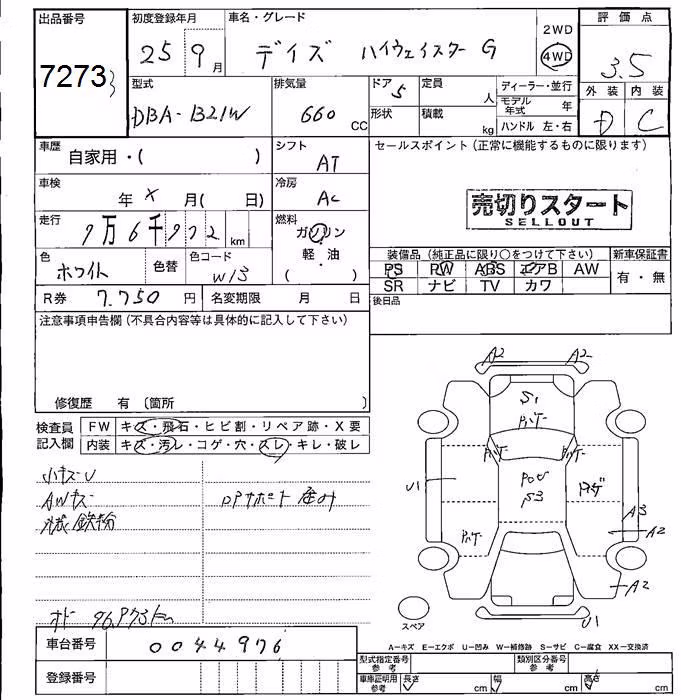 出品番号
7273
初度登録年月
25 9月
車名・グレード
デイズ ハイウェイスター G
2WD
4WD
評価点
3.5
外装 内装
D C
型式
DBA-B21W
排気量
660 CC
ドア 5
形状
定員 人
積載 kg
ディーラー・並行
モデル年式 年
ハンドル 左・右
車歴
自家用・( )
シフト
AT
セールスポイント(正常に機能するものに限ります)
車検
年 X 月( 日)
冷房
AC
売切りスタート
SELLOUT
走行
km
燃料
ガソリン
・
軽・油
( )
色
ホワイト
色替
色コード
W13
装備品(純正品に限り○をつけて下さい)
新車保証書
PS PW ABS エアB AW
SR ナビ TV カワ
有・無
R券 7.750 円
名変期限 月 日
後日品
注意事項申告欄(不具合内容等は具体的に記入して下さい)
修復歴 有 〔箇所 〕
検査員
記入欄
FW キズ・飛石・ヒビ割・リペア跡・X要
内装 キズ・汚レ・コゲ・穴・スレ・キレ・破レ
小キズU
AWキズ
鉄粉
A2 A2
S1
A3
A2
A2
U1
U1
スペア
A-キズ E-エクボ U-凹み W-補修跡 S-サビ C-腐食 XX-交換済
車台番号
0044976
登録番号
型式指定番号
参考
類別区分番号
参考
車庫証明用
参考
長さ cm
幅 cm
高さ cm